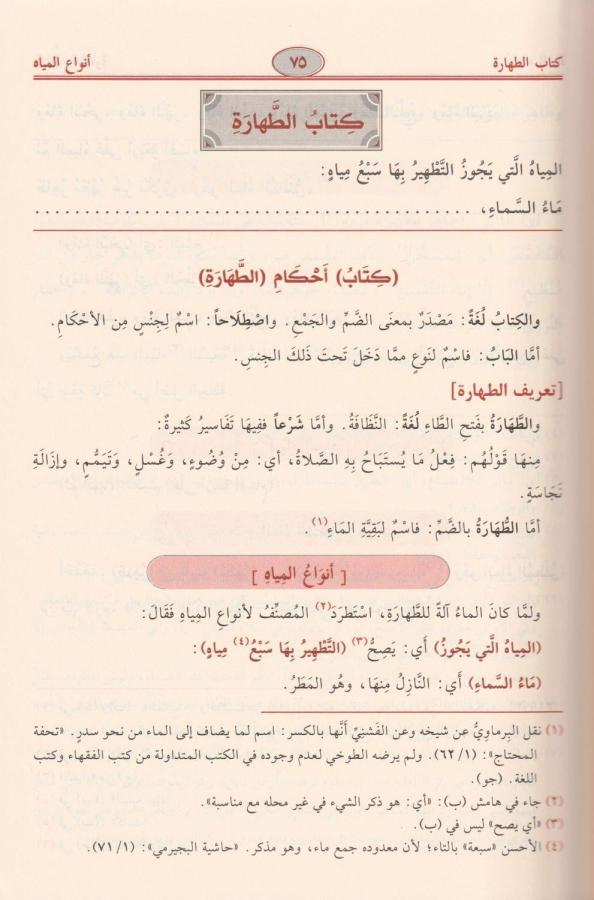 كتاب الطهارة ٧٥ أنواع المياه
كِتابُ الطَّهارَةِ
المِياهُ الَّتي يَجُوزُ التَّطْهِيرُ بِهَا سَبْعُ مِياهٍ:
مَاءُ السَّماءِ، ..........................................
(كِتَابُ) أَحْكَامِ (الطَّهَارَةِ)
والكِتابُ لُغَةً: مَصْدَرٌ بمعنَى الضَّمِّ والجَمْعِ. واصْطِلَاحاً: اسْمٌ لِجِنْسٍ مِن الأحْكَامِ.
أمَّا البَابُ: فاسْمٌ لنَوعٍ ممَّا دَخَلَ تَحتَ ذَلكَ الجِنسِ.
[تعريف الطهارة]
والطَّهَارَةُ بفَتحِ الطَّاءِ لُغَةً: النَّظَافَةُ. وأمَّا شَرْعاً ففِيهَا تَفَاسيرُ كَثيرةٌ:
مِنهَا قَوْلُهُم: فِعْلُ مَا يُستَبَاحُ بِهِ الصَّلاةُ، أي: مِنْ وُضُوءٍ، وغُسْلٍ، وتَيَمُّمٍ، وإزَالَةِ
نَجَاسَةٍ.
أمَّا الطُّهَارَةُ بالضمِّ: فاسْم لبَقِيَّةِ المَاءِ(١).
[ أنوَاعُ المِياهِ ]
ولمَّا كانَ الماءُ آلةً للطَّهارَةِ، اسْتَطرَدَ(٢) المُصنِّفُ لأنواعِ المِياهِ فَقَالَ:
(المِياهُ الَّتي يَجُوزُ) أي: يَصِحُّ(٣) (التَّطْهِيرُ بِهَا سَبْعُ(٤) مِياهٍ):
(مَاءُ السَّماءِ) أي: النَّازِلُ مِنهَا، وهُو المَطَرُ.
(١) نقل البِرماويُّ عن شيخه وعن القَشنيِّ أنَّها بالكسر: اسم لما يضاف إلى الماء من نحو سدرٍ. «تحفة
المحتاج»: (٦٢/١). ولم يرضه الطوخي لعدم وجوده في الكتب المتداولة من كتب الفقهاء وكتب
اللغة. (جو).
(٢) جاء في هامش (ب): «أي: هو ذكر الشيء في غير محله مع مناسبة».
(٣) «أي يصح» ليس في (ب).
(٤) الأحسن «سبعة» بالتاء؛ لأن معدوده جمع ماء، وهو مذكر. «حاشية البجيرمي»: (٧١/١).